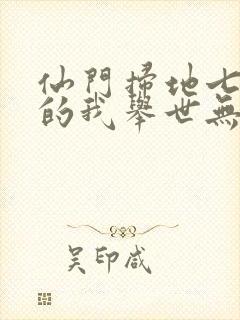 仙門掃地七
的我舉世無
吴印咸